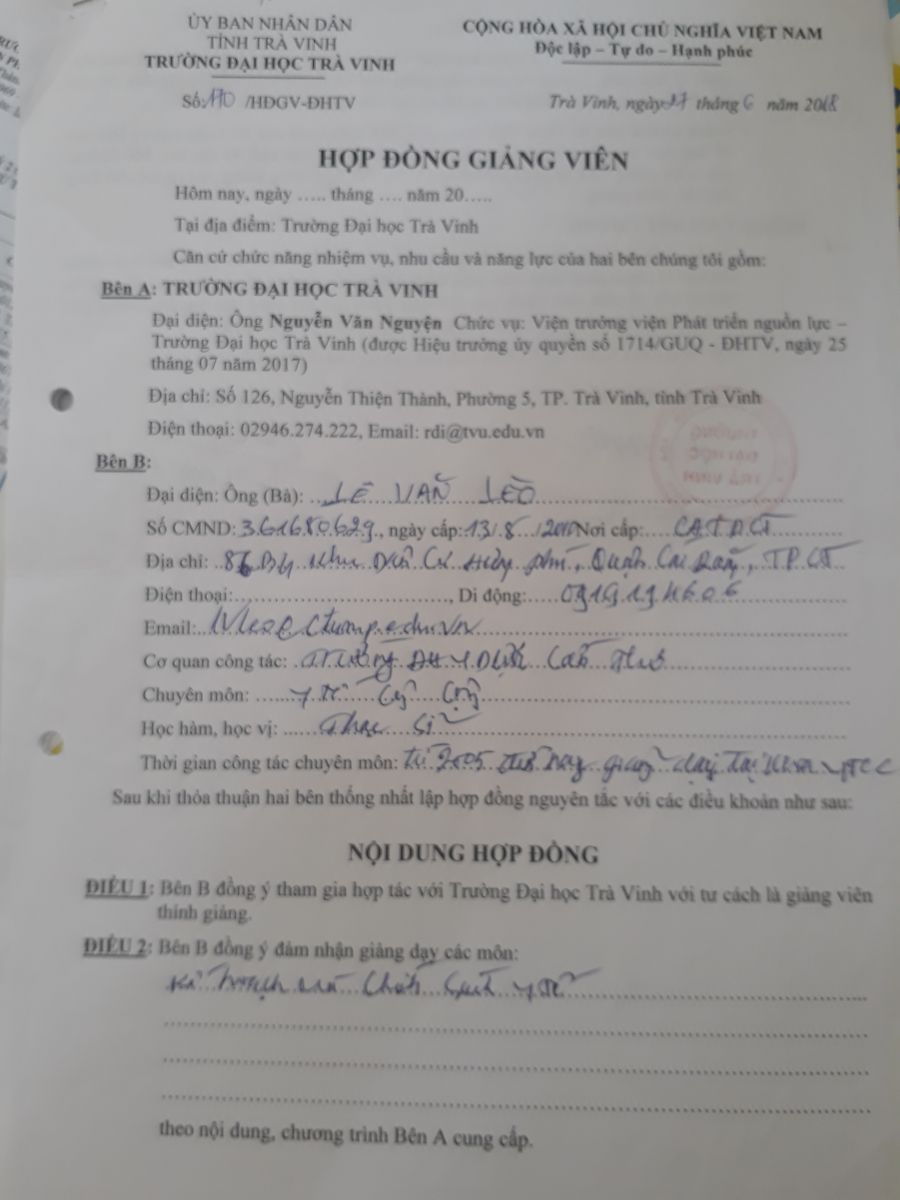 ỦY BAN NHÂN DÂN
TỈNH TRÀ VINH
TRƯỜNG ĐẠI HỌC TRÀ VINH
CỘNG HÒA XÃ HỘI CHỦ NGHĨA VIỆT NAM
Độc lập – Tự do – Hạnh phúc
Số: /HDGV-ĐHTV
Trà Vinh, ngày 27 tháng 6 năm 2018
HỢP ĐỒNG GIẢNG VIÊN
Hôm nay, ngày ..... tháng .... năm 20.....
Tại địa điểm: Trường Đại học Trà Vinh
Căn cứ chức năng nhiệm vụ, nhu cầu và năng lực của hai bên chúng tôi gồm:
Bên A: TRƯỜNG ĐẠI HỌC TRÀ VINH
Đại diện: Ông Nguyễn Văn Nguyện Chức vụ: Viện trưởng viện Phát triển nguồn lực –
Trường Đại học Trà Vinh (được Hiệu trưởng ủy quyền số 1714/GUQ - ĐHTV, ngày 25
tháng 07 năm 2017)
Địa chỉ: Số 126, Nguyễn Thiện Thành, Phường 5, TP. Trà Vinh, tỉnh Trà Vinh
Điện thoại: 02946.274.222, Email: rdi@tvu.edu.vn
Bên B:
Đại diện: Ông (Bà): LÊ VĂN LÈO
Số CMND: 361680629, ngày cấp: 13/8/2010 Nơi cấp: CATPCT
Địa chỉ: khu Dân Cư Hưng phú, Quận Cái Răng, TPCT
Điện thoại:, Di động:
Email:
Cơ quan công tác: Trường ĐH Y Dược Cần Thơ
Chuyên môn: Y tế Công Cộng
Học hàm, học vị: Thạc sĩ
Thời gian công tác chuyên môn: từ 2005 đến nay giảng dạy tại khoa YTCC
Sau khi thỏa thuận hai bên thống nhất lập hợp đồng nguyên tắc với các điều khoản như sau:
NỘI DUNG HỢP ĐỒNG
ĐIỀU 1: Bên B đồng ý tham gia hợp tác với Trường Đại học Trà Vinh với tư cách là giảng viên
thỉnh giảng.
ĐIỀU 2: Bên B đồng ý đảm nhận giảng dạy các môn:
Kế hoạch và Chính sách y tế
theo nội dung, chương trình Bên A cung cấp.